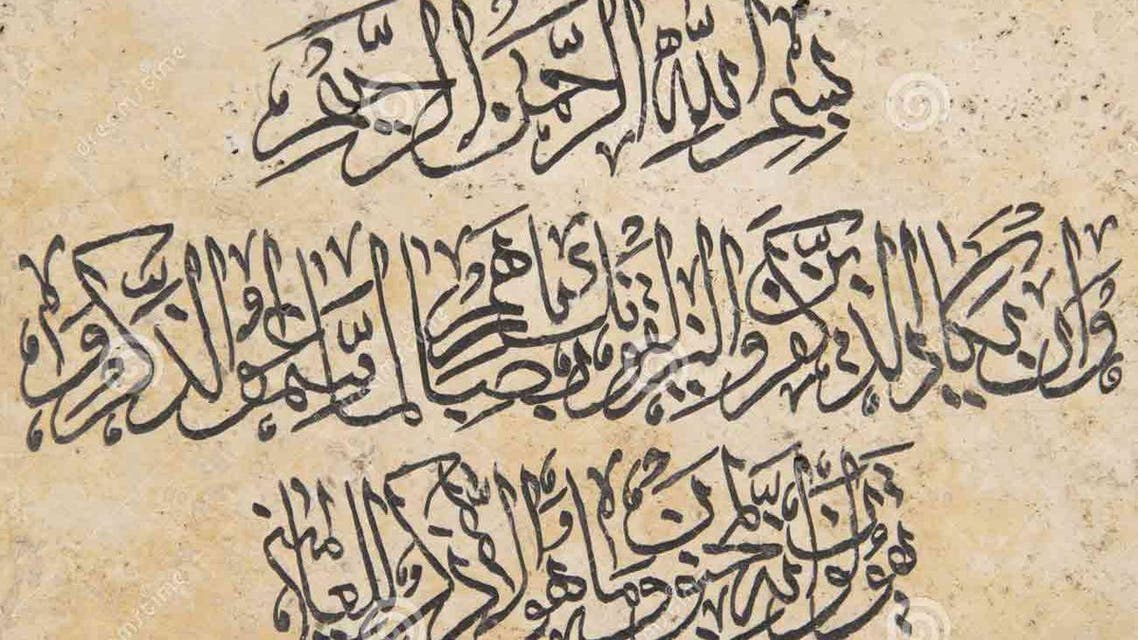 بسم الله الرحمن الرحيم
وان يكاد الذين كفروا ليزلقونك بابصارهم لما سمعوا الذكر و
يقولون انه لمجنون وما هو الا ذكر للعالمين
dreamstime